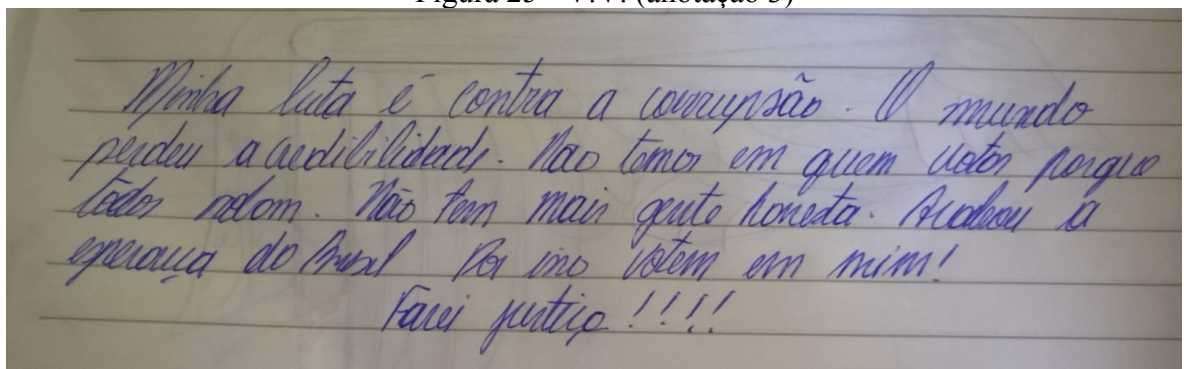 Figura 25 – V.V. (anotação 3)
Minha luta é contra a corrupsão. O mundo
perdeu a credibilidade. Não temos em quem votar porque
todos robam. Não tem mais gente honesta. Acabou a
esperança do Brasil Por isso votem em mim!
Farei justiça !!!!